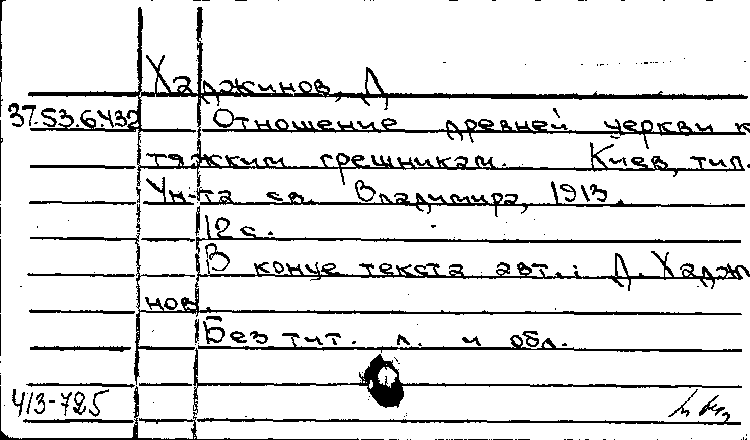 Хаджинов, Д
37.53.6.432 Отношение древней церкви к
тяжким грешникам. Киев, тип.
Ун-та св. Владимира, 1913.
12 с.
В конце текста авт.: Д. Хаджи
нов.
Без тит. л. и обл.
413-725